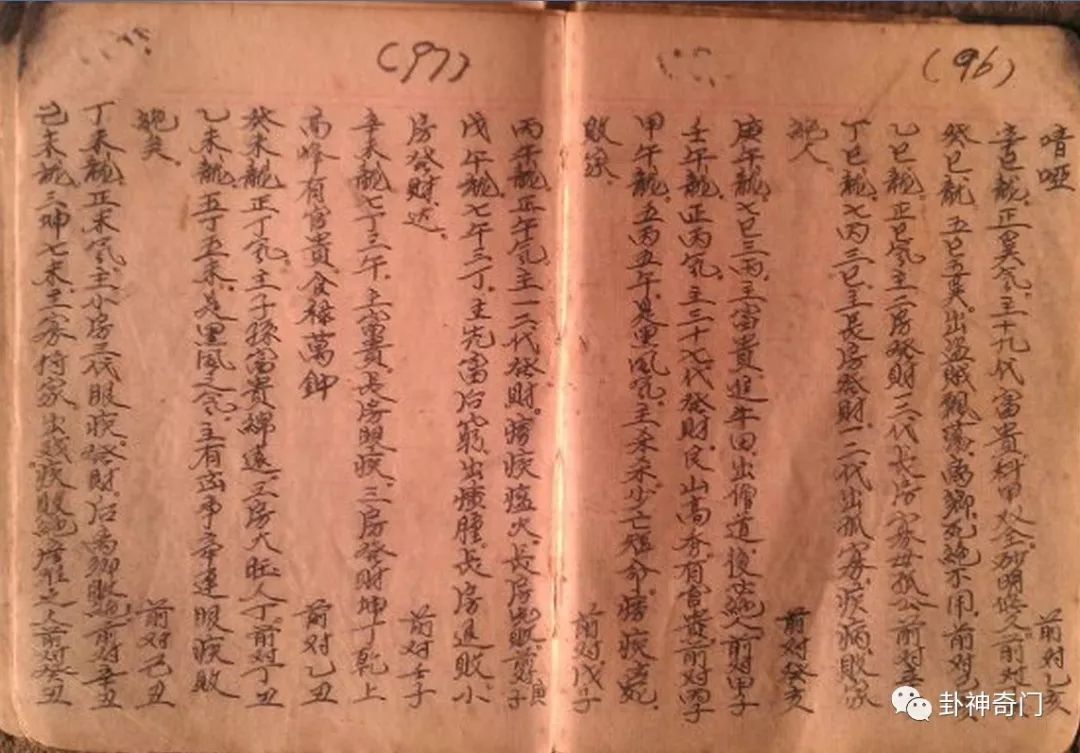 (96)
喑哑 前对乙亥
辛巳龍,正巽氣,主十九代富貴,科甲双全,砂明悠久,前对
癸巳龍,五巳五巽。出盗賊飄蕩,离鄉死絶不用,前对
乙巳龍,正巳氣主二房發財,二三代長房寡母孤公前对
丁巳龍,七丙三巳,主長房發財,一二代出孤寡,疾病,敗家
絶人 前对癸亥
庚午龍,七巳三丙,主富貴進牛田,出僧道,後亦絶人前对甲子
壬午龍,正丙氣,主三十七代發財,艮山高秀,有官貴,前对丙子
甲午龍,五丙五午,是黑風氣,主少亡短命,痨疾
敗家. 前对,戊子
(97)
丙午龍,正午氣主一二代發財,痨疾瘟火,長房敗,前对庚子
戊午龍,七午三丁,主先富后貧,出瘋腫,長房退敗,小
房發財,达, 前对壬子
辛未龍七丁三午,主富貴長房眼疾,三房發財坤丁乾上
高峰有官貴,食禄萬鈡 前对乙丑
癸未龍正丁氣,主子孫富貴綿遠,三房大旺人丁,前对丁丑
乙未龍,五丁五未,是黑風之氣,主有凶事牵連眼疾敗
絶矣. 前对己丑
丁未龍,正未氣主,小房一代眼疾,發財,后离鄉敗絶前对辛丑
己未龍,三坤七未,主寡付家,出賤疾敗絶之人前对癸丑
卦神奇门